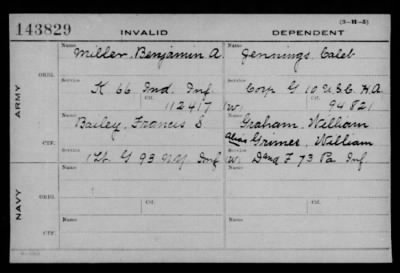 143829 INVALID DEPENDENT
(3-11-5)
ARMY
ORIG.
Name Miller, Benjamin A.
Service K 66 Ind. Inf.
Ctf. 112417
Name Jennings, Caleb
Service Corp G 10 U.S.C. H.A.
W. Ctf. 94821
CTF.
Name Bailey, Francis S.
Service 1 Lt. G 93 N.Y. Inf
Name Graham, William
Alias Grimes, William
Service W. F 73 Pa Inf.
NAVY
ORIG.
Name
Service
Ctf.
Name
Service
Ctf.
CTF.
Name
Name